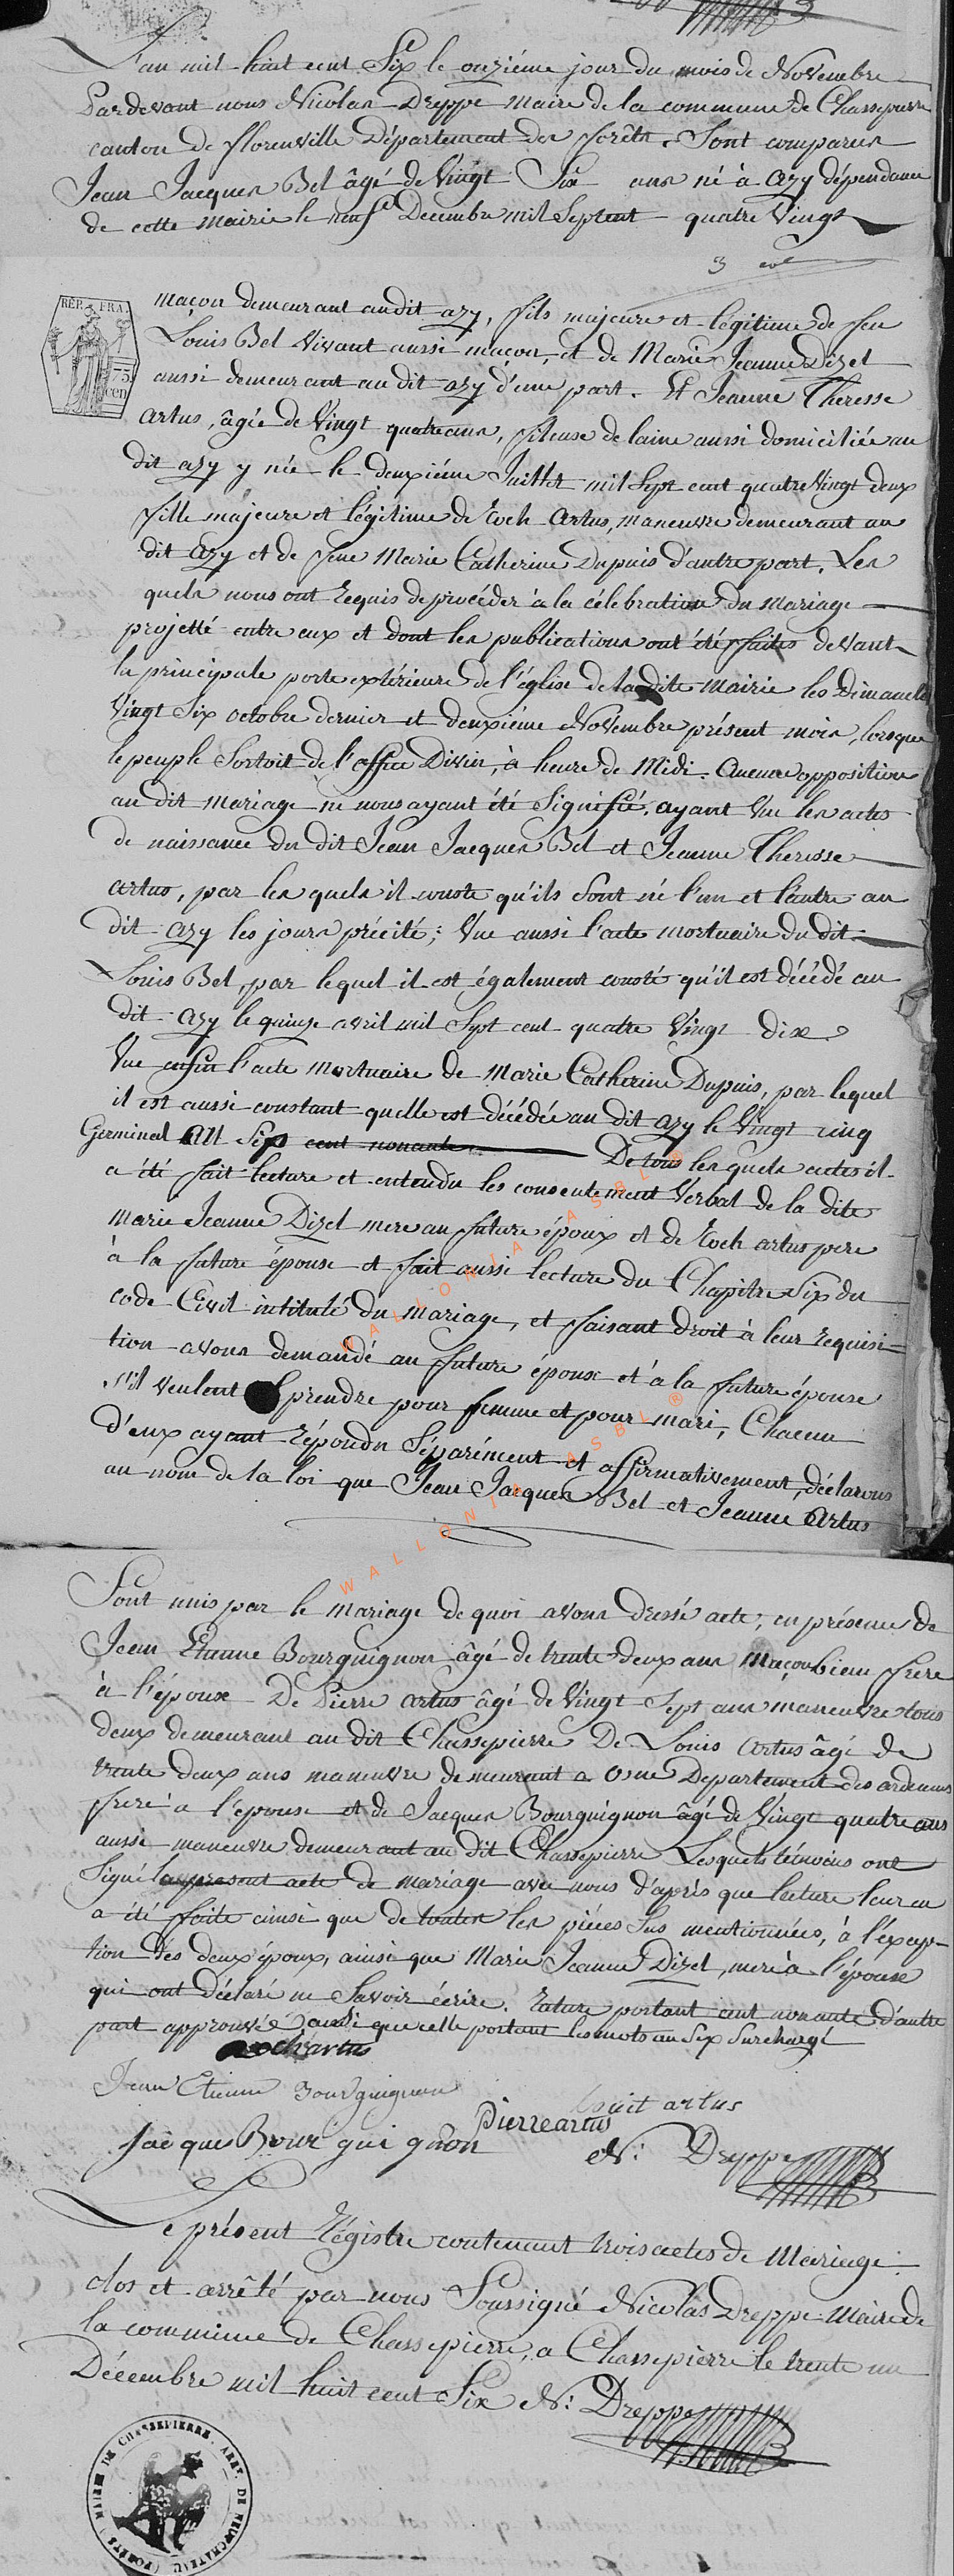 L'an mil huit cent Six le onzième jour du mois de Novembre
Pardevant nous Nicolas Dreppe maire de la commune de Chassepierre
canton de florenville Département des forêts. Sont comparus
Jean Jacques Bel âgé de Vingt Six ans né à azy dépendance
de cette Mairie le neuf Decembre mil Septcent quatre Vingt
3
REP. FRA.
75
cen
maçon demeurant audit azy, fils majeure et légitime de feu
Louis Bel Vivant aussi maçon, et de Marie Jeanne Dizel
aussi demeurant au dit azy d'une part. Et Jeanne Theresse
artus, âgée de Vingt quatre ans, fileuse de laine aussi domiciliée au
dit azy y née le deuxiéme Juillet mil Sept cent quatre Vingt deux
fille majeure et légitime de Roch Artus, maneuvre demeurant au
dit azy et de feue Marie Catherine Dupuis d'autre part. Les
quels nous ont Requis de procéder à la célebration du Mariage
projetté entre eux et dont les publications ont été faites devant
la principale porte extérieure de l'église de la dite Mairie les Dimanche
Vingt Six octobre dernier et deuxiéme Novembre présent mois, lorsque
le peuple Sortoit de l'office Divin, à heure de Midi. Aucune opposition
au dit mariage ne nous ayant été Signifié, ayant Vue les actes
de naissance du dit Jean Jacques Bel et Jeanne Theresse
artus, par les quels il conste qu'ils Sont né l'un et l'autre au
dit azy les jours précité; Vue aussi l'acte mortuaire du dit
Louis Bel, par lequel il est également consté qu'il est décédé au
dit azy le quinze avril mil Sept cent quatre Vingt dix
Vue enfin l'acte Mortuaire de Marie Catherine Dupuis, par lequel
il est aussi constant quelle est décédée au dit azy le Vingt cinq
Germinal an Six cent nonante De tous lesquels actes il
a été fait lecture et entendu les consentement Verbal de la dite
Marie Jeanne Dizel mere au future époux et de Roch artus pere
à la future épouse et fait aussi lecture du Chapitre Six du
code Civil intitulé du Mariage, et faisant droit à leur requisi=
tion avons demandé au future époux et à la future épouse
s'il veulent prendre pour femme et pour mari, Chacun
d'eux ayant Répondu Séparément et affirmativement, déclarons
au nom de la loi que Jean Jacques Bel et Jeanne Artus
Sont unis par le mariage de quoi avons dressé acte, en présence de
Jean Etienne Bourguignon âgé de trente deux ans Maçon bien frere
à l'époux De Pierre artus âgé de Vingt Sept ans maneuvre tous
deux demeurant au dit Chassepierre De Louis Artus âgé de
trente deux ans maneuvre demeurant a Osne Departement des ardennes
frere a l'epouse et de Jacques Bourguignon âgé de Vingt quatre ans
aussi maneuvre demeurant au dit Chassepierre Lesquels témoins ont
Signé le present acte de mariage avec nous d'après que lecture leur en
a été faite ainsi que de toutes les piéces Sus mentionnées, à l'éxcep-
tion des deux époux, ainsi que Marie Jeanne Dizel, mere à l'épouse
qui ont Déclaré ne Savoir écrire. Rature portant cent nonante d'autre
part approuvée ainsi que celle portant les mots an Six Surchargé
roch artus
Jean Etienne Bourguignon
Louit artus
Pierre artus
Jacque Bour gui gnon
N: Dreppe
Le présent Régistre contenant trois actes de Mariage
clos et arrêté par nous Soussigné Nicolas Dreppe Maire de
la commune de Chassepierre, a Chassepierre le trente un
Décembre mil huit cent Six N: Dreppe
MAIRIE DE CHASSEPIERRE. ARRT. DE NEUFCHATEAU (FORETS)
WALLONIA ASBL ®
WALLONIA ASBL ®